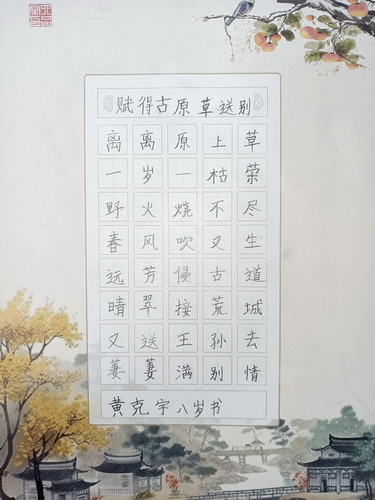 赋得古原草送别
离离原上草
一岁一枯荣
野火烧不尽
春风吹又生
远芳侵古道
晴翠接荒城
又送王孙去
萋萋满别情
黄克宇八岁书